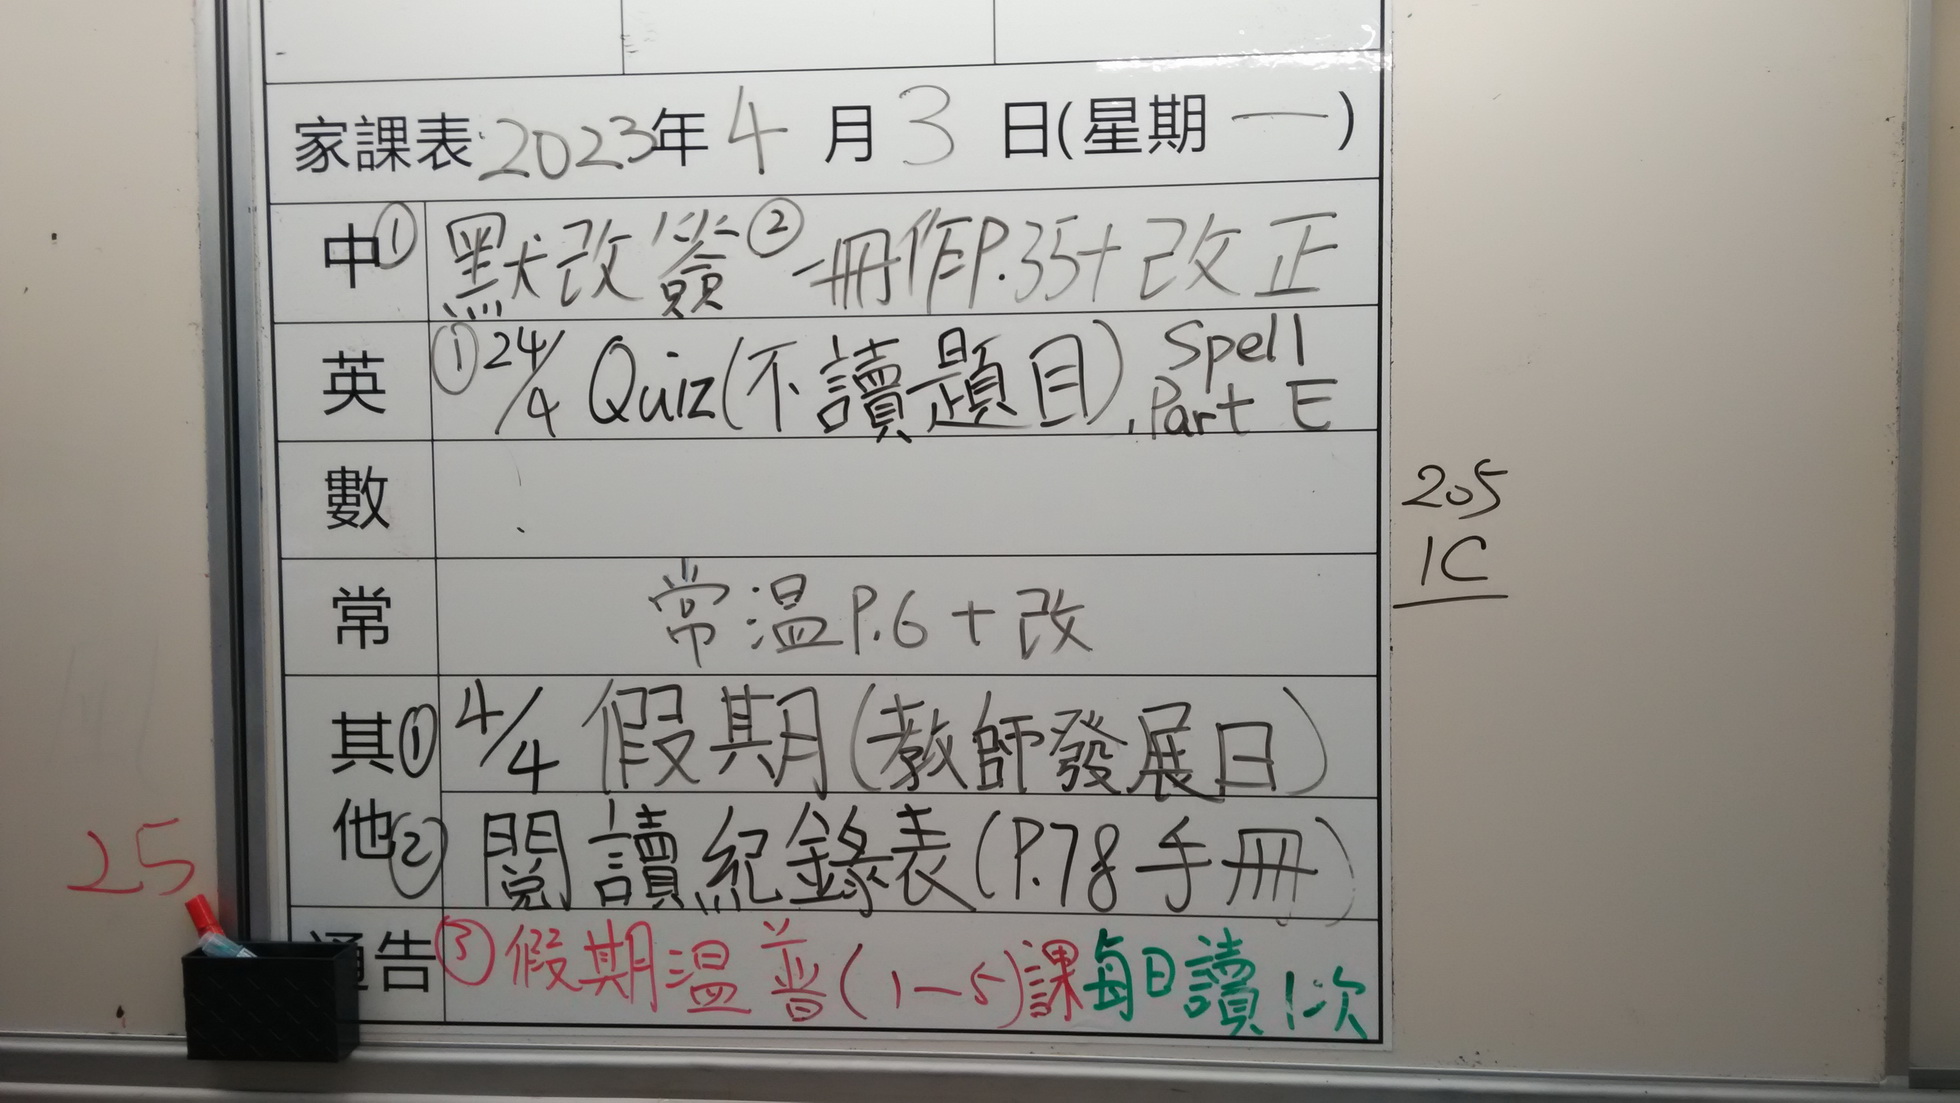 家課表:2023年4月3日(星期一)
中①默改簽②冊作P.35+改正
英①24/4 Quiz(不讀題目), Spell Part E
數
205
1C
常 常温P.6+改
其他①4/4 假期(教師發展日)
②閱讀紀錄表(P.78手冊)
25
通告③假期温普(1-5)課每日讀1次